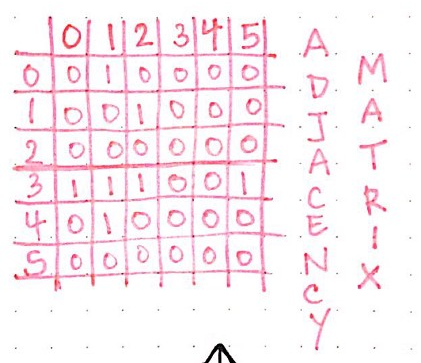 0 1 2 3 4 5
0 0 1 0 0 0 0
1 0 0 1 0 0 0
2 0 0 0 0 0 0
3 1 1 1 0 0 1
4 0 1 0 0 0 0
5 0 0 0 0 0 0
ADJACENCY
MATRIX